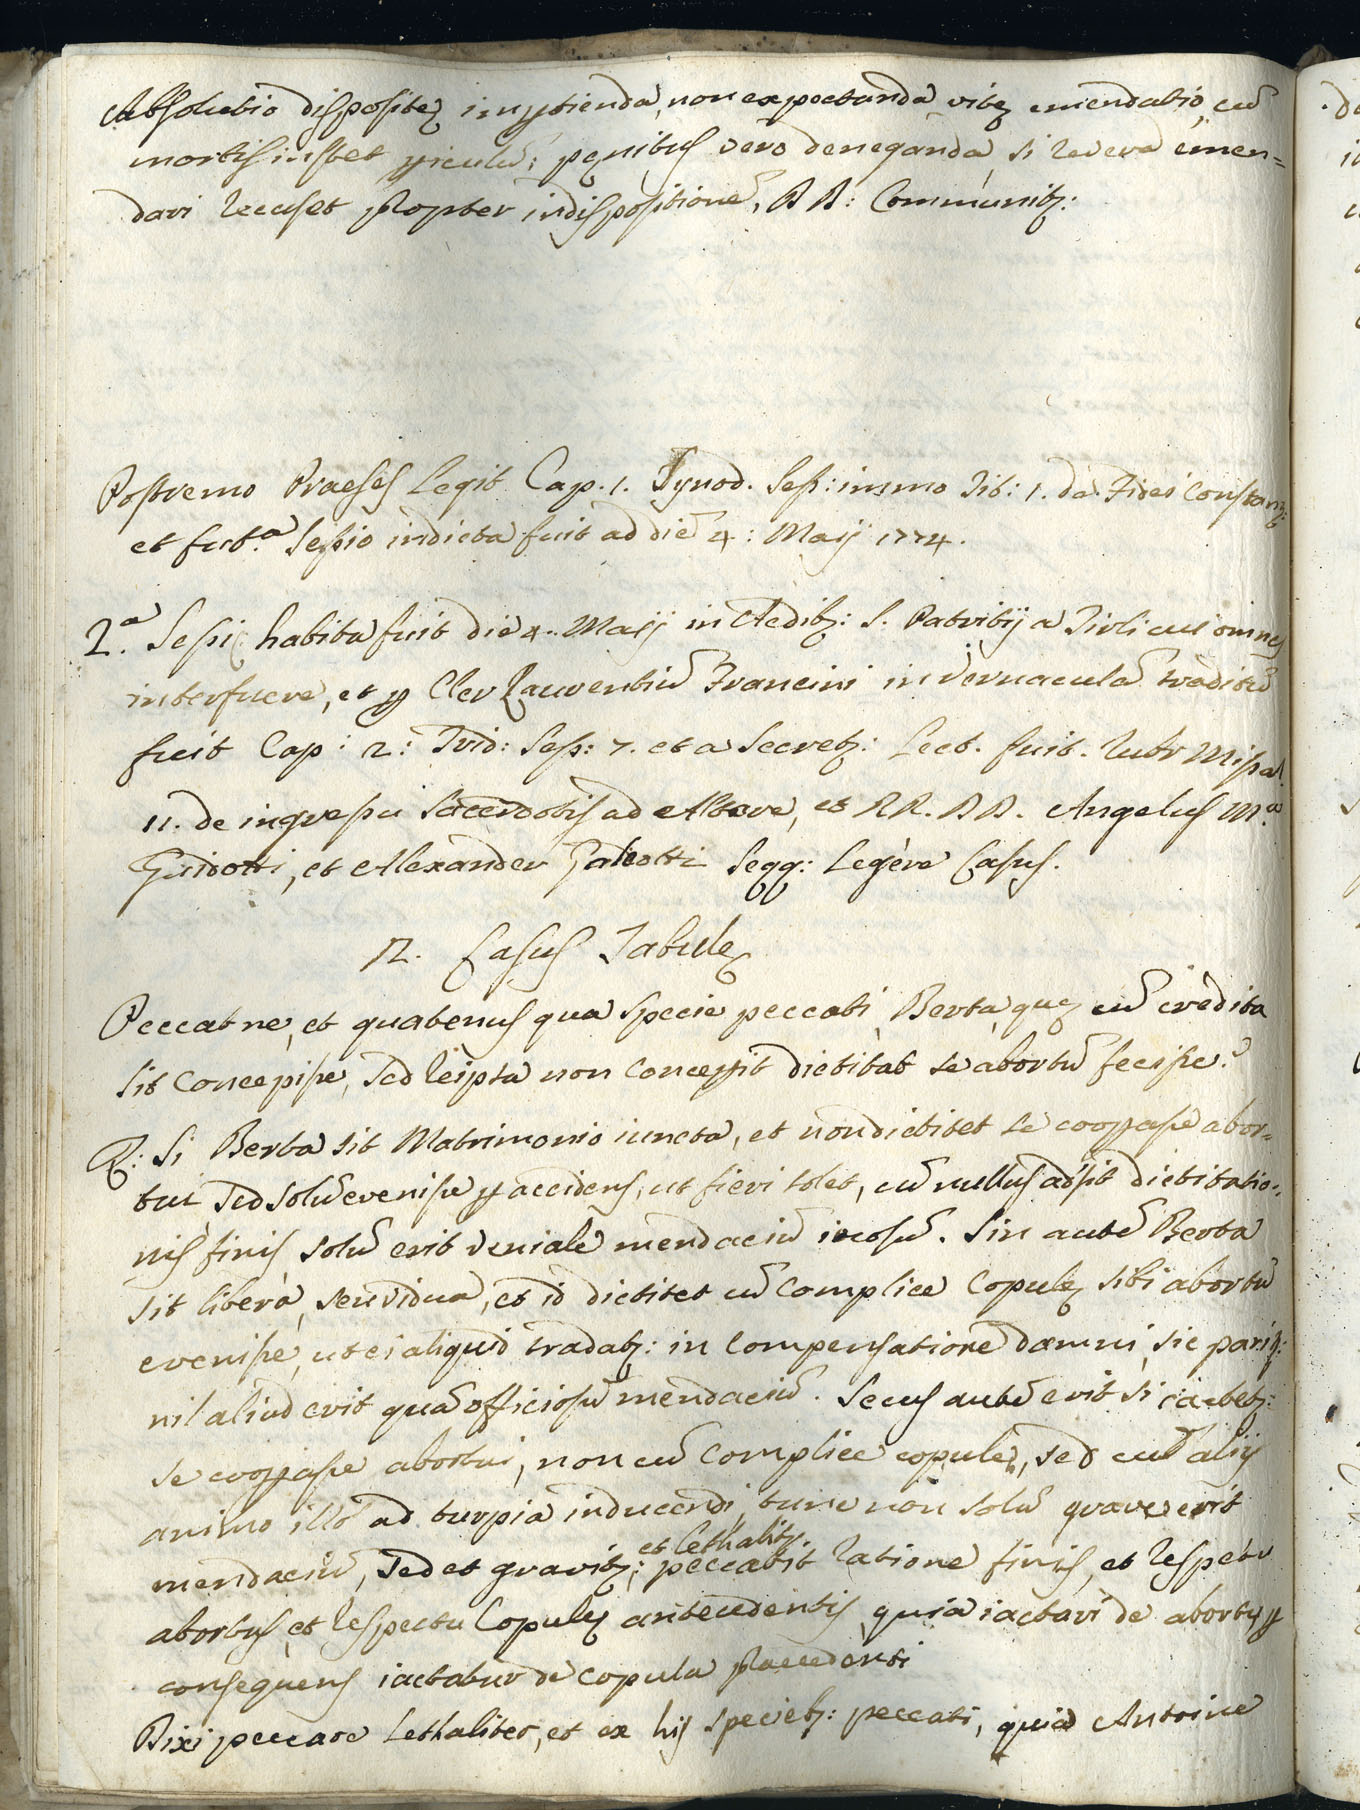 Absolutio dispositę impẽtienda, non expectanda vitę emendatio, cũ
mortis instet ꝑiculũ; pęnitus vero deneganda, si revera emen=
dari recuset propter indispositionẽ, DD: Communitȝ:
Postremo Praeses Legit Cap. 1. Synod. Sess: in ... Tit: 1. de Fidei Constan
et fut.ª Sessio indicta fuit ad diẽ 4: Maij 1774.
2.ª Sessio habita fuit die 4. Maij in Aedibȝ: S. Patritij a Tirli cui omnes
interfuere, et ꝑ Cler Laurentiũ Francini in vernaculã traditũ
fuit Cap: 2: Trid: Sess: 7. et a Secretȝ: Lect. fuit. Rubr Missal
11. de ingressu Sacerdotis ad Altare, et RR. DD. Angelus M.ª
Guidotti, et Alexander Galeotti seqq: Legere Casus.
12. Casus Tabulę
Peccat ne, et quatenus qua specie peccati Berta, quę cũ credita
sit concepisse, sed reipsa non conceꝑit dictitat se abortũ fecisse?
R: Si Berta sit Matrimonio iuncta, et non dictitet se cooꝑasse abor=
tui sed solũ evenisse ꝑ accidens, ut fieri solet, cũ nullus adsit dictitatio=
nis finis solũ erit veniale mendaciũ iocosũ. Sin autẽ Berta
sit libera, seu vidua, et id dictitet cũ complice Copulę sibi abortũ
evenisse, ut ei aliquid tradatȝ: in compensatione damni, sic pariȝ:
nil aliud erit quã officiosũ mendaciũ. Secus autẽ erit si iactetȝ:
se cooꝑasse abortui, non cũ complice copulę, sed cũ alijs
animo illos ad turpia inducendi, tunc non solũ grave erit
mendaciũ, sed et gravitȝ: et lethalitȝ. peccabit ratione finis, et respectu
abortus, et respectu Copulę antecedentis, quia iactari de abortu, ꝑ
consequens iactatur de copula praecedenti
Dixi peccare Lethaliter, et ex his specietȝ: peccati, quia Antoine